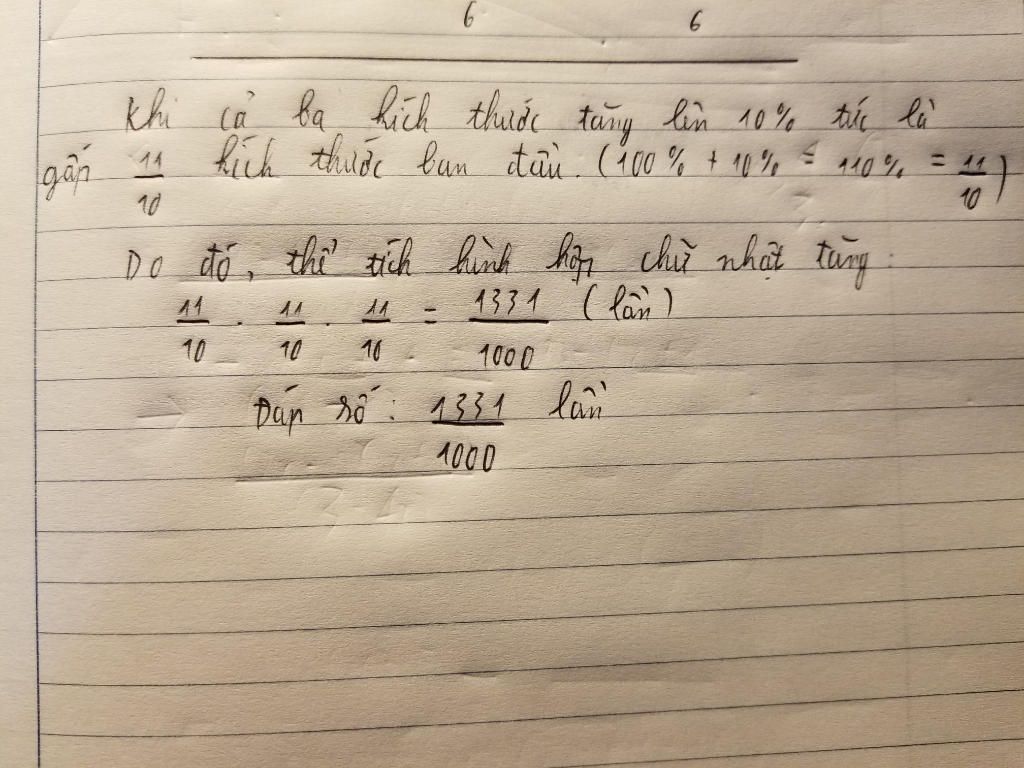 6 6
Khi cả ba kích thước tăng lên 10% tức là
gấp 11/10 kích thước ban đầu. (100% + 10% = 110% = 11/10)
Do đó, thể tích hình hộp chữ nhật tăng:
11/10 . 11/10 . 11/10 = 1331/1000 (lần)
Đáp số: 1331/1000 lần